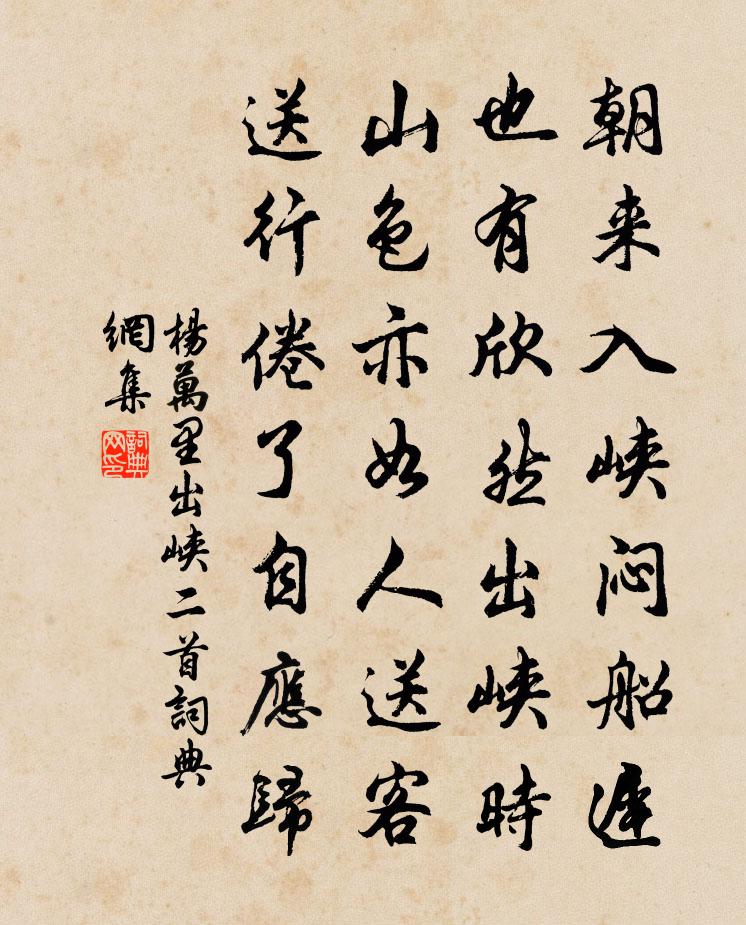 朝来入峡闷船遲
也有欣然出峡時
山色亦如人送客
送行倦了自應歸
楊萬里出峡二首詞典
網集
詞典
网印